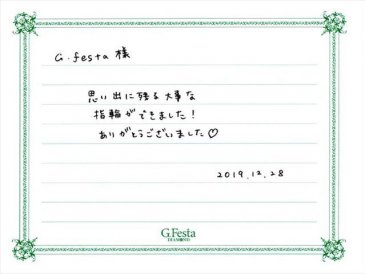 G.festa 様
思い出に残る大事な
指輪ができました！
ありがとうございました♡
2019.12.28
G.Festa
DIAMOND